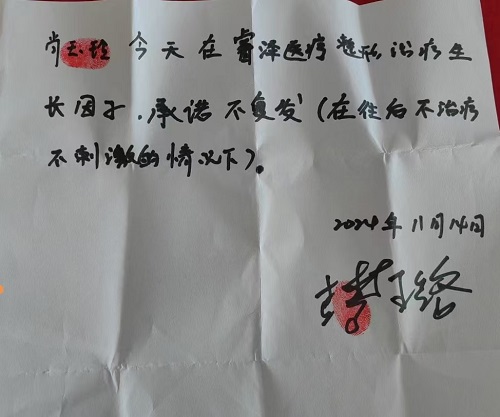 尚玉玲今天在睿泽医疗整形治疗生
长因子,承诺不复发(在往后不治疗
不刺激的情况下)。
2024年11月14日